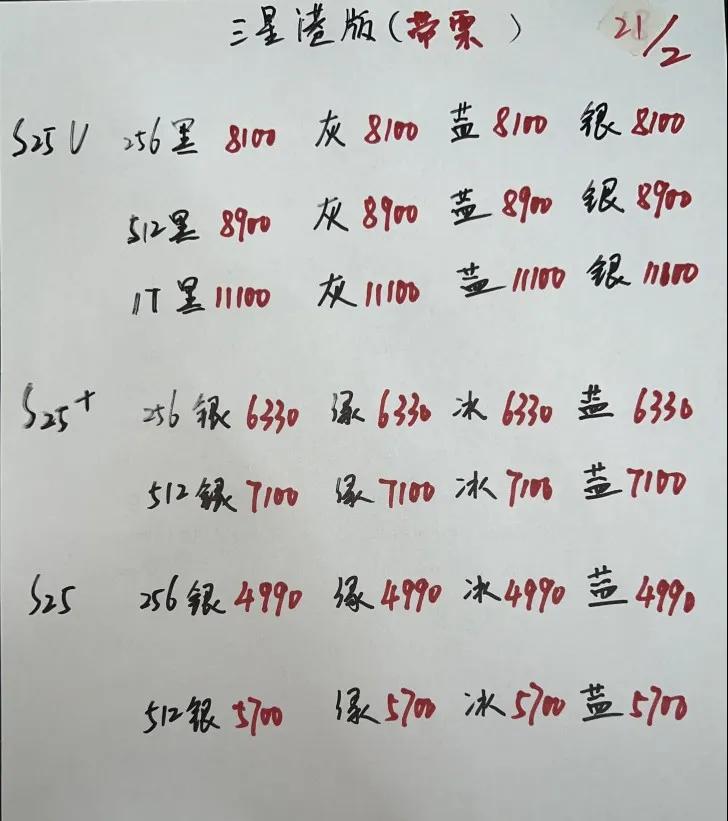 三星港版(带票) 21/2
S25U 256黑 8100 灰 8100 蓝 8100 银 8100
512黑 8900 灰 8900 蓝 8900 银 8900
1T 黑 11100 灰 11100 蓝 11100 银 11100
S25+ 256 银 6330 绿 6330 冰 6330 蓝 6330
512银 7100 绿 7100 冰 7100 蓝 7100
S25 256 银 4990 绿 4990 冰 4990 蓝 4990
512银 5700 绿 5700 冰 5700 蓝 5700